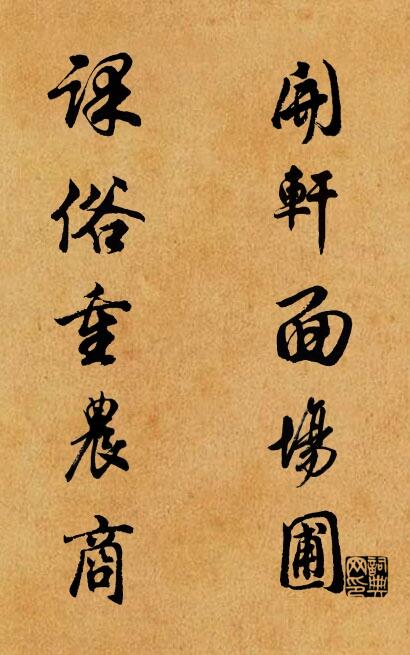 開軒面場圃
課俗重農商
詞典网印